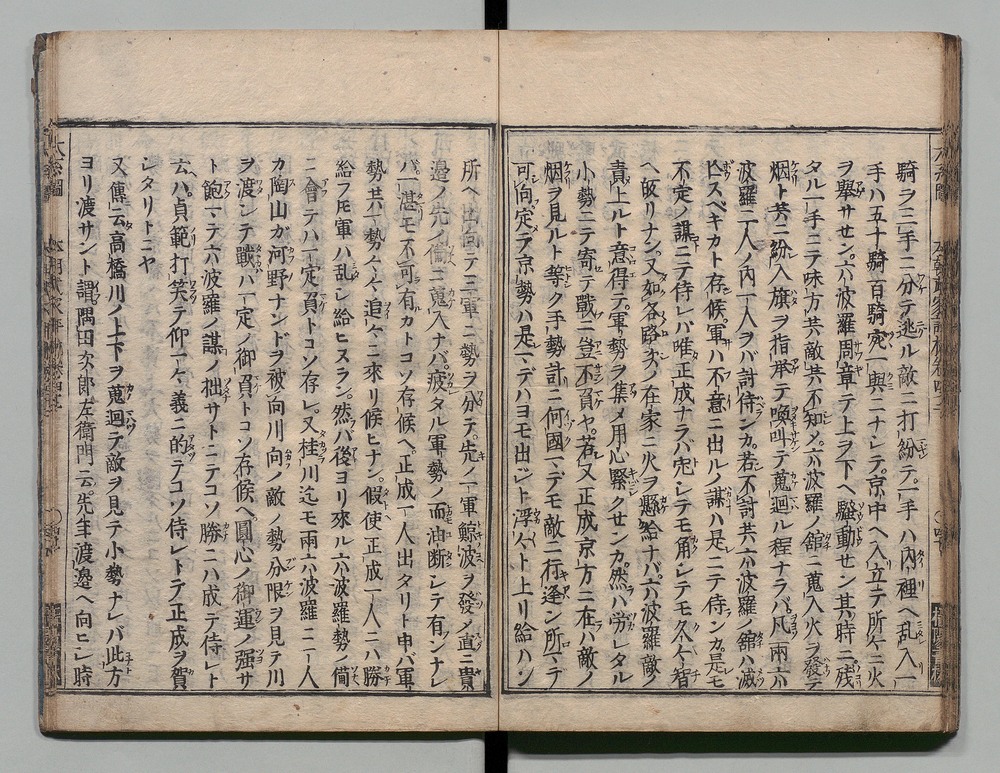 騎ヲ二手ニ分テ逃ル敵ニ打紛テ一手ハ内裡ヘ乱入一
手ハ五十騎百騎宛一與ニナシテ京中ヘ入立テ所々ニ火
ヲ擧サセン六波羅周章テ上ヲ下ヘ騒動セン其時ニ残
タル一手ニテ味方共敵共不知〆六波羅ノ舘ニ蒐入火ヲ發テ
烟ト共ニ紛入旗ヲ指挙テ喚叫テ蒐廻ル程ナラバ凡兩六
波羅二人ノ内一人ヲバ討侍ンカ若不討共六波羅ノ舘ハ滅
ヒスベキカト存候軍ハ不意ニ出ルノ謀ハ是ニテ侍ンカ是モ
不定ノ謀ニテ侍レバ唯正成ナラバ宛シテモ角シテモ久々智
ヘ皈リナン又如各路次ノ在家ニ火ヲ懸給ナバ六波羅敵ノ
責上ルト意得テ軍勢ヲ集メ用心緊クセンカ然ハ労レタル
小勢ニテ寄テ戰ニ豈不負ヤ若又正成京方ニ在ハ敵ノ
烟ヲ見ルト等ク手勢計ニ何國ニデモ敵ニ行逢ン所ニテ
可向定ヲ京勢ハ是ニデハヨモ出ジト浮々ト上リ給ハン
所ヘ出向テ三軍ニ勢ヲ分テ先ノ一軍鯨波ヲ發ノ直ニ貴
邊ノ先ノ備ニ蒐入ナバ疲タル軍勢ノ而油断シテ有ンナレ
バ一湛モ不可有カトコソ存候ヘ正成一人出タリト申バ軍
勢共一勢々々追々ニ來リ候ヒナン假使正成一人ニハ勝
給フ𪜈軍ハ乱レ給ヒスラン然バ後ヨリ來ル六波羅勢ノ備
ニ會テハ一定負トコソ存レ又桂川迄モ兩六波羅ニ一人
カ陶山カ河野ナンドヲ被向川向ノ敵ノ勢分限ヲ見テ川
ヲ渡シテ戰バ一定ノ御負トコソ存候ヘ圓心ノ御運ノ强サ
ト飽マテ六波羅ノ謀ノ拙サトニテコソ勝ニハ成テ侍レト
云ハ貞範打笑テ仰一々義ニ的テコソ侍レトテ正成ヲ賀
レタリトニヤ
又傳云高橋川ノ上下ヲ蒐廻テ敵ヲ見テ小勢ナレバ此方
ヨリ渡サント謂隅田次郎左衛門云先年渡邉ヘ向ヒシ時